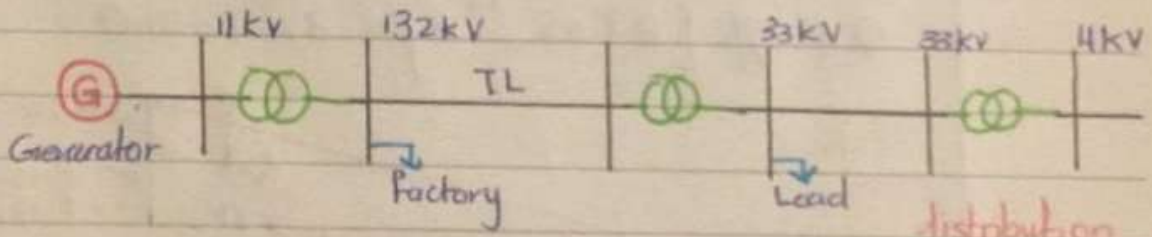 11kV 132kV 33kV 33kV 11kV
G TL
Generator
Factory Load
distribution